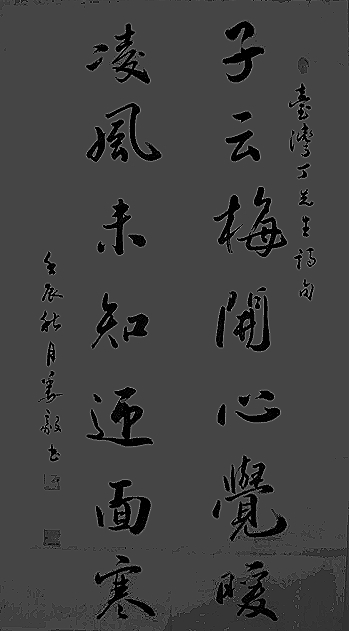 臺灣丁先生詩句
子云梅開心覺暖
凌風未知迎面寒
壬辰秋月